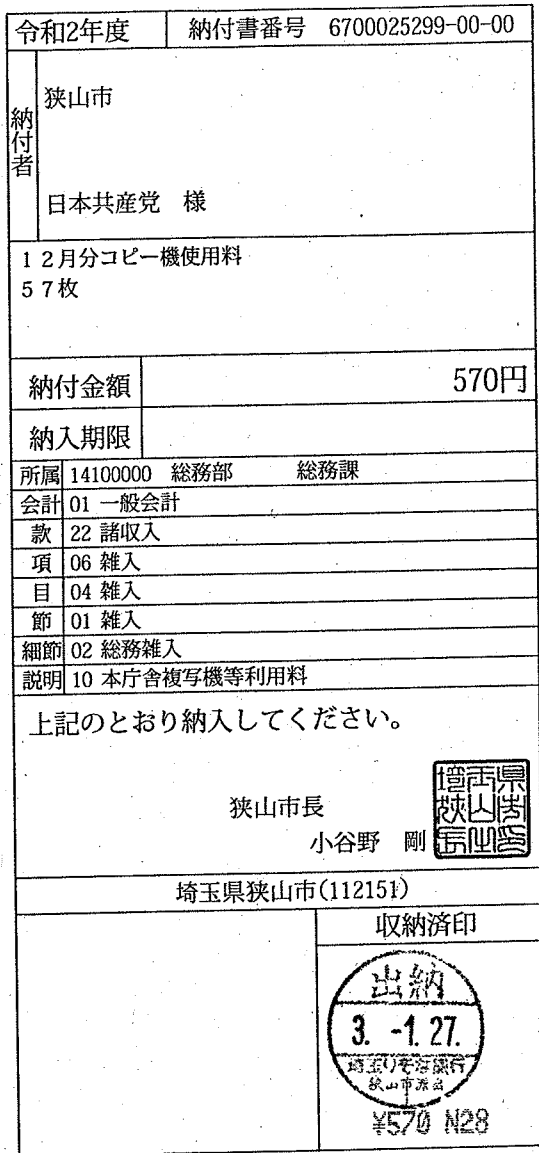 令和2年度 納付書番号 6700025299-00-00
納付者
狭山市
日本共産党 様
12月分コピー機使用料
57枚
納付金額 570円
納入期限
所属 14100000 総務部 総務課
会計 01 一般会計
款 22 諸収入
項 06 雑入
目 04 雑入
節 01 雑入
細節 02 総務雑入
説明 10 本庁舎複写機等利用料
上記のとおり納入してください。
狭山市長
小谷野 剛
埼玉県狭山市(112151)
収納済印
出納
3. -1. 27.
埼玉りそな銀行
狭山市派出
¥570 N28